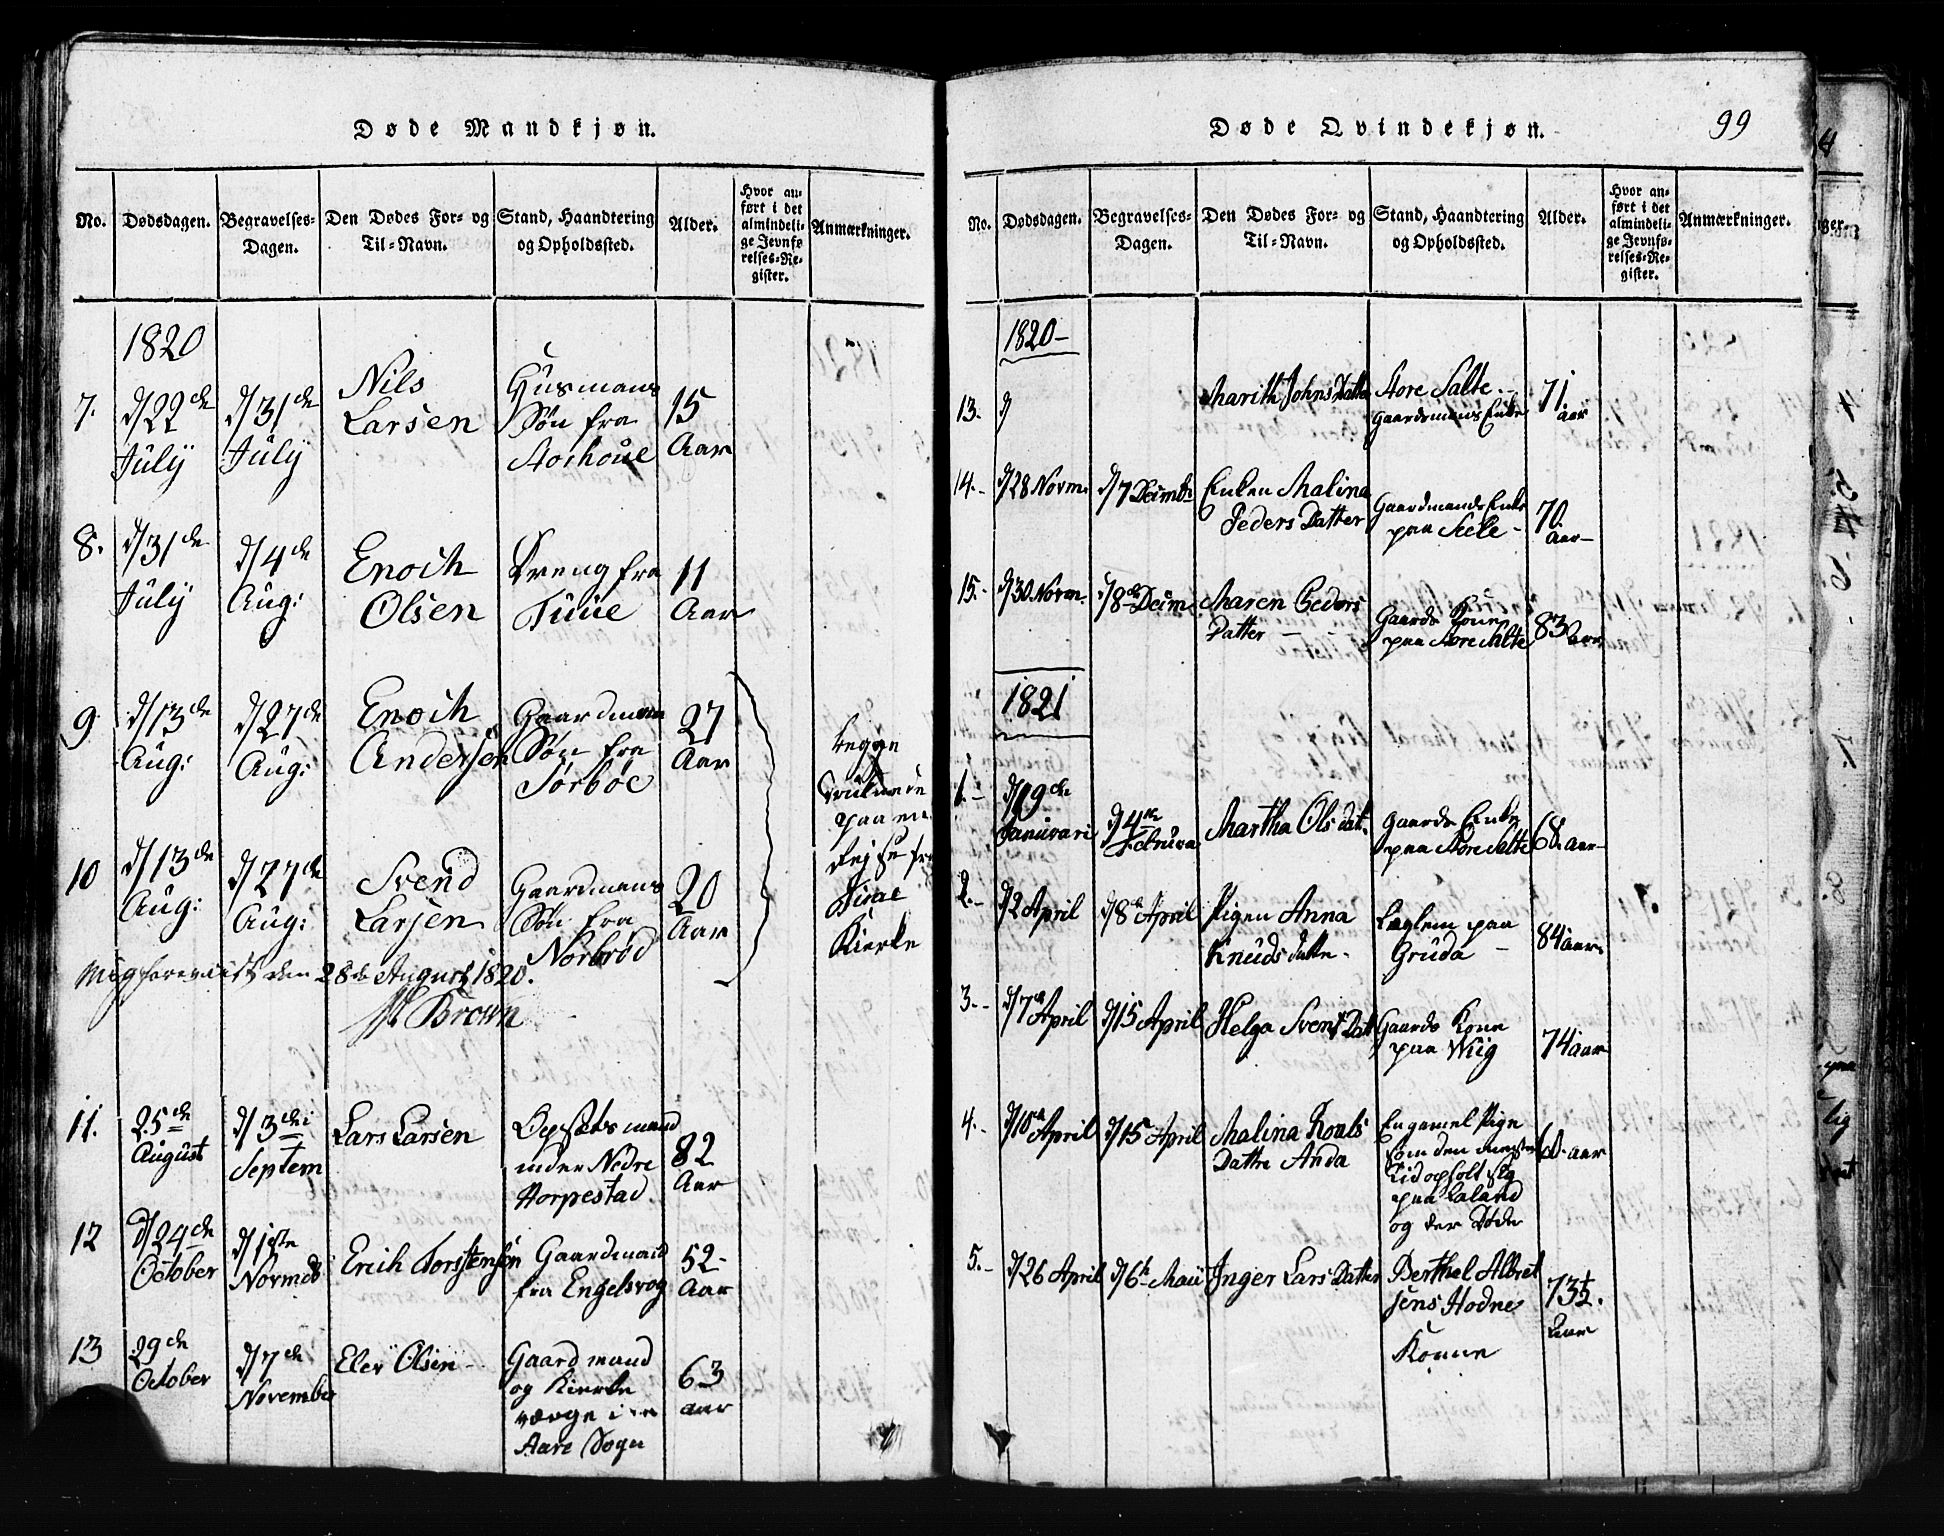 Døde Mandkjøn.
No. Dødsdagen. Begravelses-Dagen. Den Dødes For- og Til-Navn. Stand, Haandtering og Opholdssted. Alder. Hvor anført i det almindelige Jevnførelses-Register. Anmærkninger.
1820
7. d/22de July d/31de July Nils Larsen Husmans Søn fra 15 Aar
8. d/31de July d/4de Aug: Enoch Olsen Dreng fra Tuue 11 Aar
9 d/13de Aug: d/27de Aug: Enoch Andersen Gaardmans Søn fra Sørbøe 27 Aar
begge
druknede
paa en
Rejse fra
Kierke
10 d/13de Aug: d/27de Aug: Svend Larsen Gaardmans Søn fra Norbrød 20 Aar
Mig foreviist den 28de August 1820.
Brown
11. 25de August d/3die Septem Lars Larsen Opsæts mand under Nedre Horpestad 82 Aar
12 d/24de October d/1ste Novmb Erich Torstensøn Gaardmand fra Engelsvog 52 Aar
13 29de October d/7de November Elev Olsen Gaardmand og Kierke værge i Aare Sogn 63 aar
Døde Qvindekjøn.
99
No. Dødsdagen. Begravelses-Dagen. Den Dødes For- og Til-Navn. Stand, Haandtering og Opholdssted. Alder. Hvor anført i det almindelige Jevnførelses-Register. Anmærkninger.
1820
13. d/ Marith Johns Datter Store Salte Gaardmans Enke 71 aar
14. d/28 Novm. d/7 Decmb Enken Malina Peders Datter Gaardmands Enke paa Seele 70 Aar
15. d/30 Novm. d/8de Decm Maren Peders Datter Gaards Kone paa Store Salte 83 aar
1821
1. d/19de Januvari d/4de Februva Martha Ols dat. Gaards Enke paa Store Salte 68 aar
2. d/2 April d/8de April Pigen Anna Knuds datter Læglem paa Gruda 84 aar
3. d/7de April d/15 April Helga Svens Datt Gaards Kone paa Wiig 74 aar
4. d/10de April d/15 April Malina Roals Datter Anda En gamel Pige som den meste Tid opholt sig paa Laland og der Døde aar
5. d/26 April d/6te Maii Inger Lars Datter Berthel Albret sens Hodne Konne 73½. aar